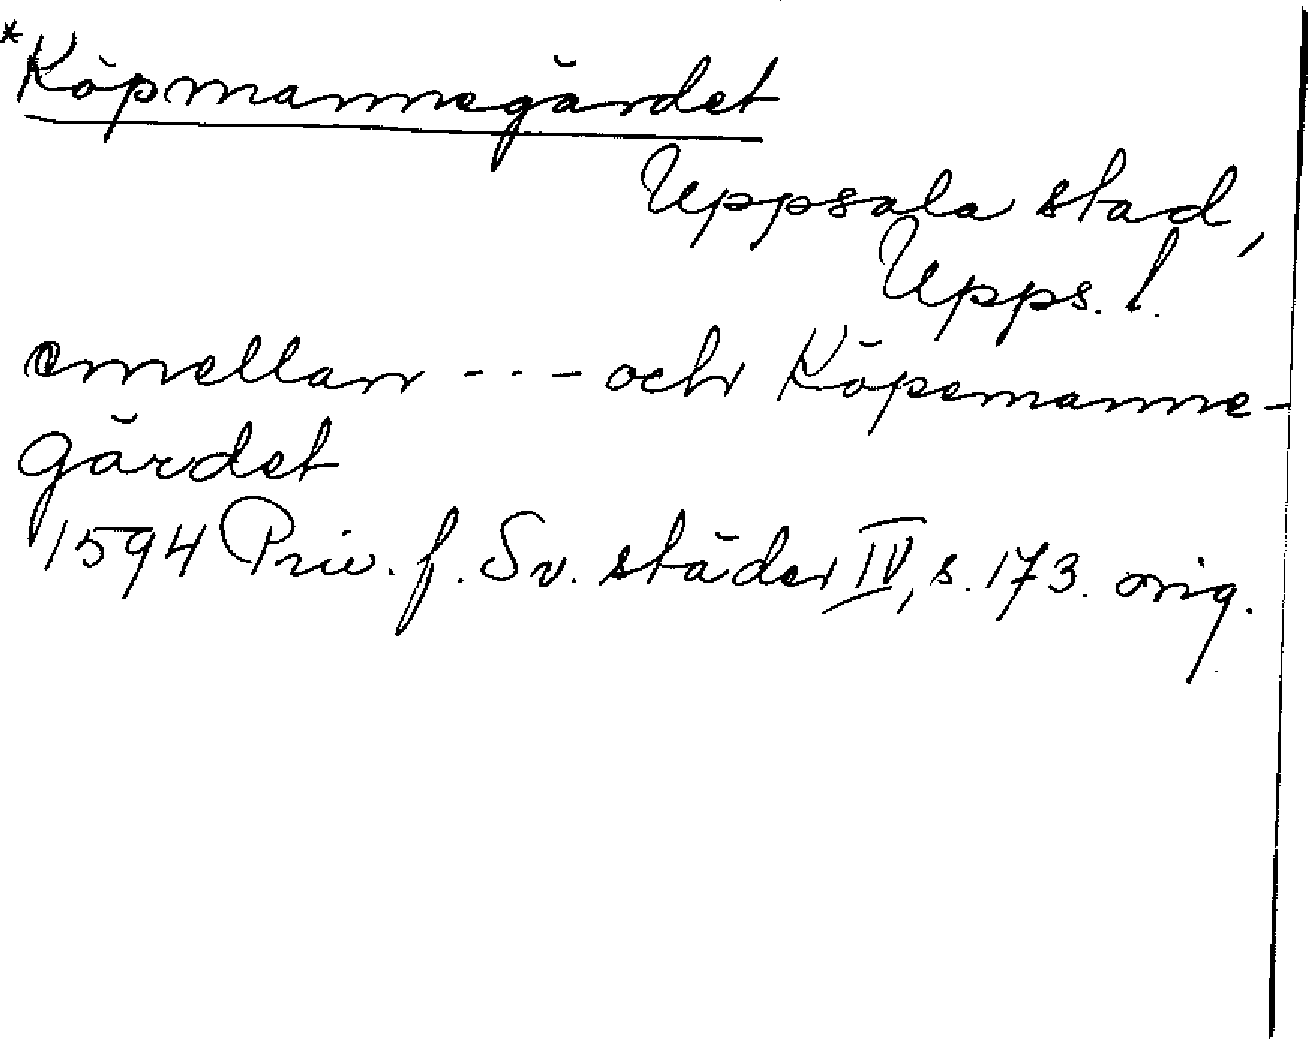 *Köpmannegärdet
Uppsala stad,
Upps. l.
emellan - - - och Köpemanne-
gärdet
1594 Priv. f. Sv. städer IV, s. 173. orig.